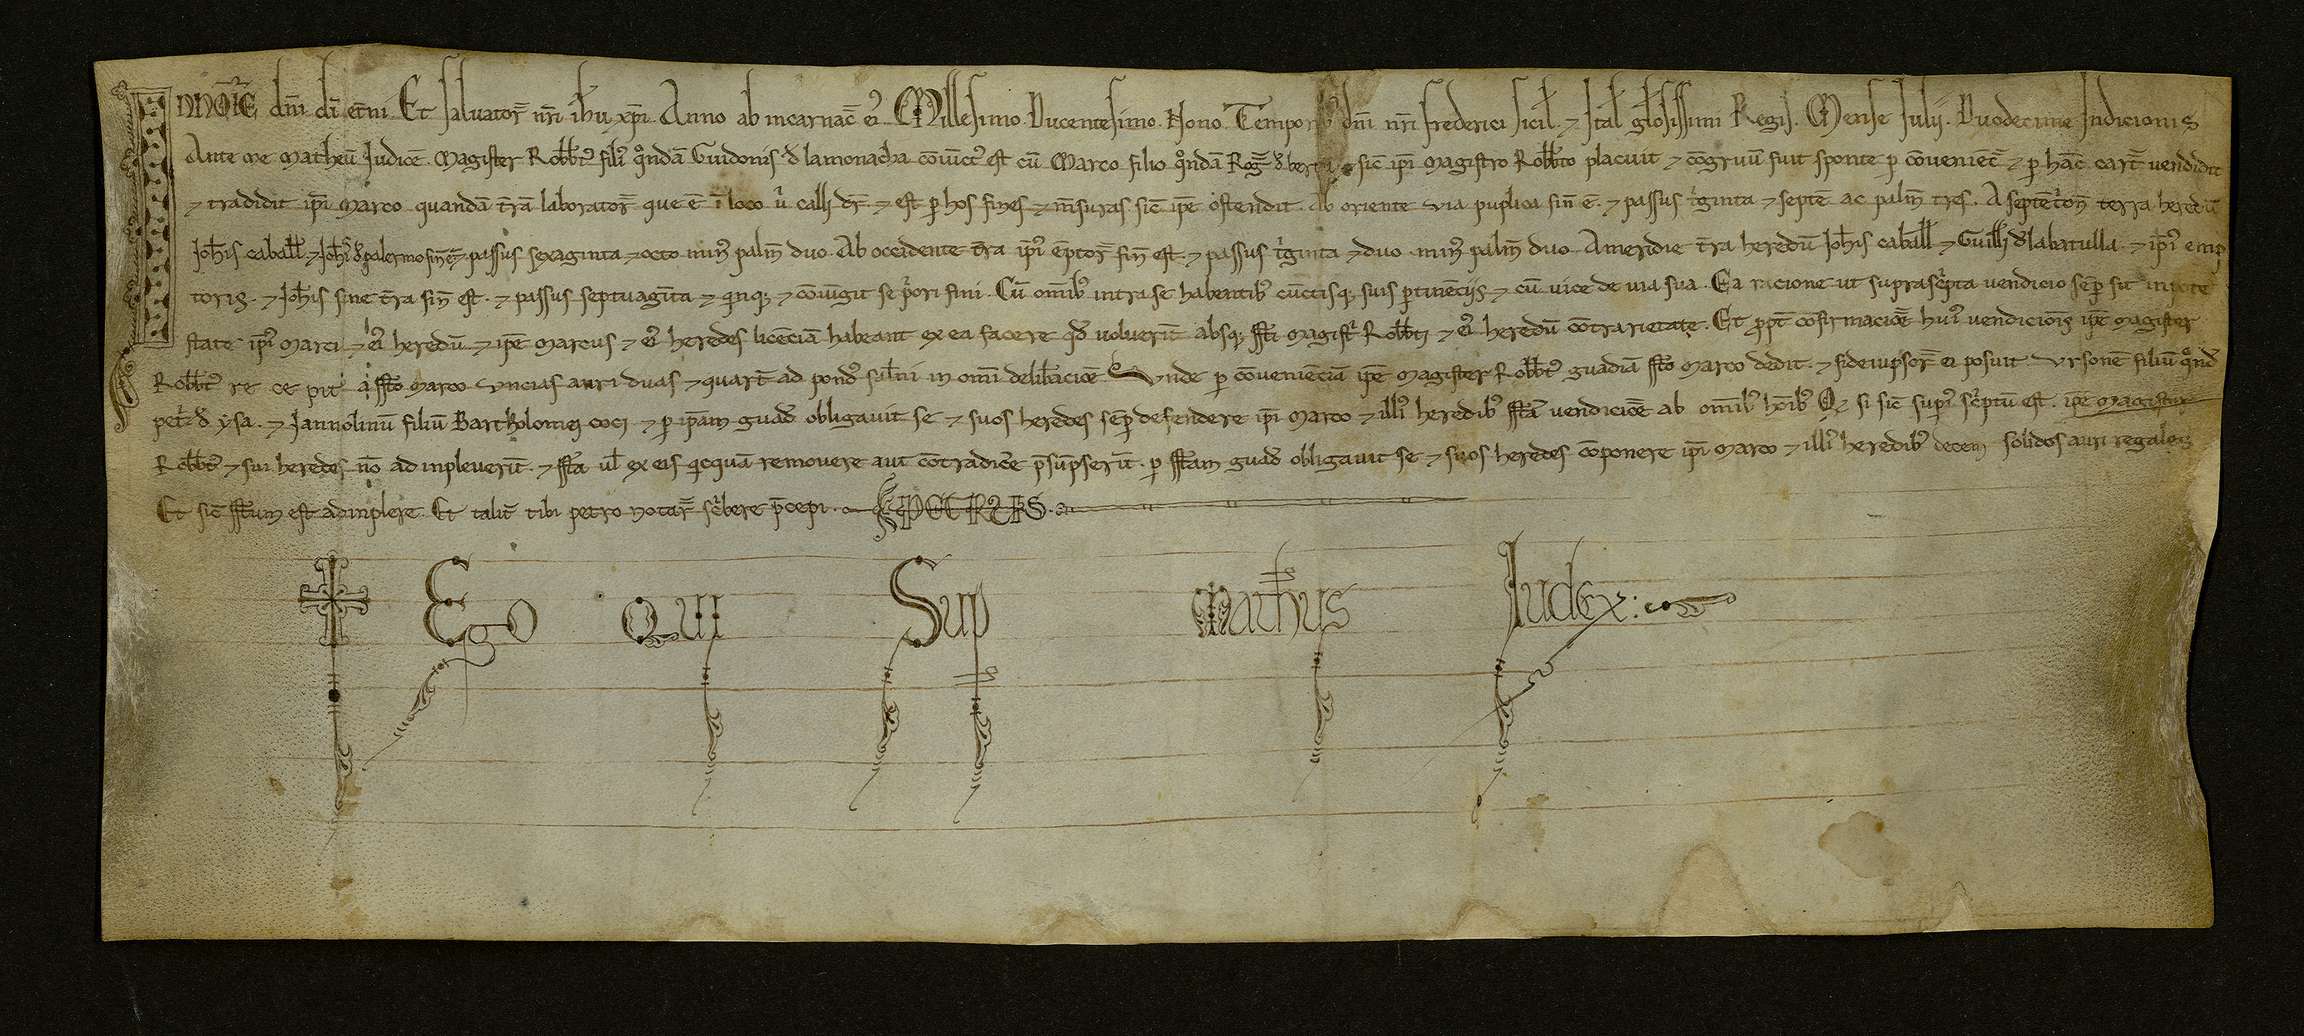 IN NOIE dni di etni Et salvator nri ihu xpi. Anno ab incarnac ei Millesimo Ducentesimo Nono Temporib dni nri frederici sicil 7 Ital glosissimi Regis. Mense Julij. Duodecime Indicionis
Ante me Matheu Judice. Magister Robbt fili qnda Guidonis d lamonacha coniuct est cu Marco filio qnda Rog d sic ipi Magistro Robbto placuit 7 cogruu fuit sponte p coveniec 7 p hac cart vendidit
7 tradidit ipi Marco quanda tra laborator que e i loco u calli dr. 7 est p hos fines 7 msuras sic ipe ostendit. Ab oriente via puplica fin e. 7 passus tginta 7 septe ac palm tres. A septeton terra heredu
Johis caball 7 Johi d palermo fin e 7 passus sexaginta 7 octo min palm duo. Ab occidente tra ipi eptor fin est. 7 passus tginta 7 duo min palm duo. Ameridie tra heredu Johis caball 7 Guilli d labatulla. 7 ipi emp
toris. 7 Johis sine tra fin est. 7 passus septuaginta 7 qnq; 7 coniugit se pori fini. Cu omib intra se habentib cuctisq; suis ptineciis 7 cu vice de via sua. Ea racione ut suprascpta vendicio sep sit inpote
state ipi Marci 7 ei heredu. 7 ipe Marcus 7 ei heredes licecia habeant ex ea facere qd voluerit absq; ssti magist Robbti 7 ei heredu cotrarietate. Et ppt cofirmacioe hui vendiciois ipe Magister
Robbt re ce pit a ssto Marco Uncias auri duas 7 quart ad pond salni in omi delibacioe. Unde p coveniecia ipe Magister Robbt guadia ssto Marco dedit. 7 fideiupsor ei posuit. Ursone filiu qnd
pet d ysa. 7 Jannolinu filiu Bartholomei coci 7 p ipam guad obligavit se 7 suos heredes sep defendere ipi Marco 7 illi heredib ssta vendicioe ab omib hoib Q si sic supi scptu est. ipe magister
Robbt 7 sui heredes no ad inpleverit. 7 ssta ul ex eis qcqua removere aut cotradice psupserit. p sstam guad obligavit se 7 suos heredes coponere ipi Marco 7 illi heredib decem solidos auri regales
Et sic sstum est adinplere. Et talit tibi petro notar scbere pcepi. PETRUS.
† Ego Qui Sup Matheus Judex: